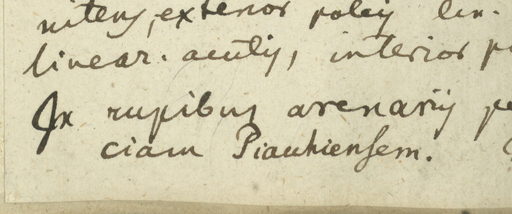 nitens, exterior foliis lin-
linear. acutis, interior
In rupibus arenariis
ciam Piauhiensem.